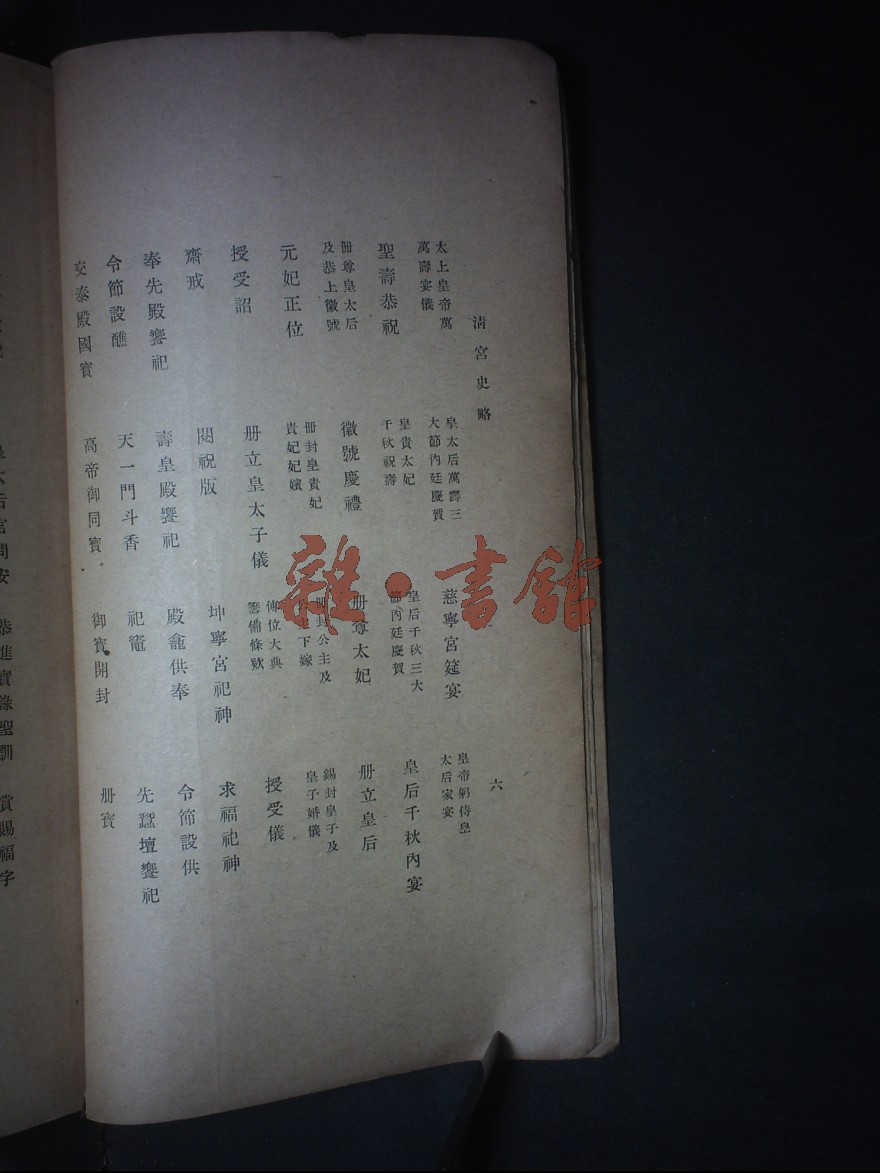 清宮史略　六
太上皇帝萬
萬壽宴儀
皇太后萬壽三
大節內廷慶賀
慈寧宮筵宴
皇帝躬侍皇
太后家宴
聖壽恭祝
皇貴太妃
千秋祝壽
皇后千秋三大
節內廷慶賀
皇后千秋內宴
册尊皇太后
及恭上徽號
徽號慶禮
册尊太妃
册立皇后
元妃正位
册封皇貴妃
貴妃妃嬪
册封公主及
主下嫁
錫封皇子及
皇子婚儀
授受詔
册立皇太子儀
傳位大典
籌備條欵
授受儀
齋戒
閱祝版
坤寧宮祀神
求福祀神
奉先殿饗祀
壽皇殿饗祀
殿龕供奉
令節設供
令節設醮
天一門斗香
祀竈
先蠶壇饗祀
交泰殿國寶
高帝御同寶
御寶開封
册寶
太后宮問安
恭進實錄聖訓
賞賜福字
雜·書館